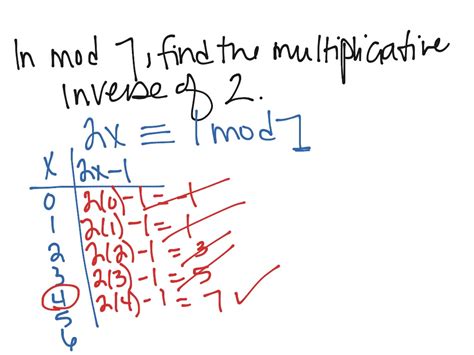 In mod 7, find the multiplicative
inverse of 2.
2x ≡ 1 mod 7
x 2x-1
0 2(0)-1 = -1
1 2(1)-1 = 1
2 2(2)-1 = 3
3 2(3)-1 = 5
4 2(4)-1 = 7 ✓
5
6